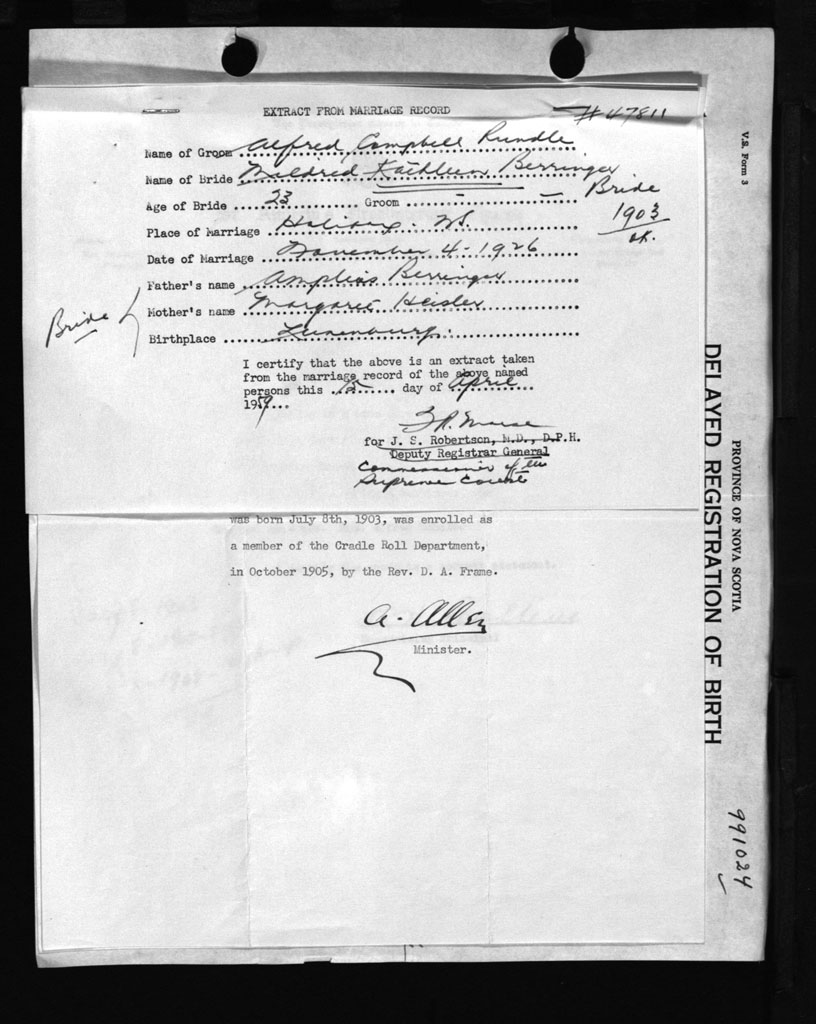 EXTRACT FROM MARRIAGE RECORD
# 47811
Name of Groom Alfred Campbell Rundle
Name of Bride Mildred Kathleen Berringer
Age of Bride 23 Groom - -
Bride
1903
ok.
Place of Marriage Halifax. N.S.
Date of Marriage November 4 - 1926
Father's name Amplias Berringer
Mother's name Margaret Heisler
Bride
Birthplace Lunenburg.
I certify that the above is an extract taken
from the marriage record of the above named
persons this 15 day of April
1959
for J. S. Robertson, M.D., D.P.H.
Deputy Registrar General
Commissioner of the
Supreme Court
was born July 8th, 1903, was enrolled as
a member of the Cradle Roll Department,
in October 1905, by the Rev. D. A. Frame.
A. Allen
Minister.
V.S. Form 3
PROVINCE OF NOVA SCOTIA
DELAYED REGISTRATION OF BIRTH
991024